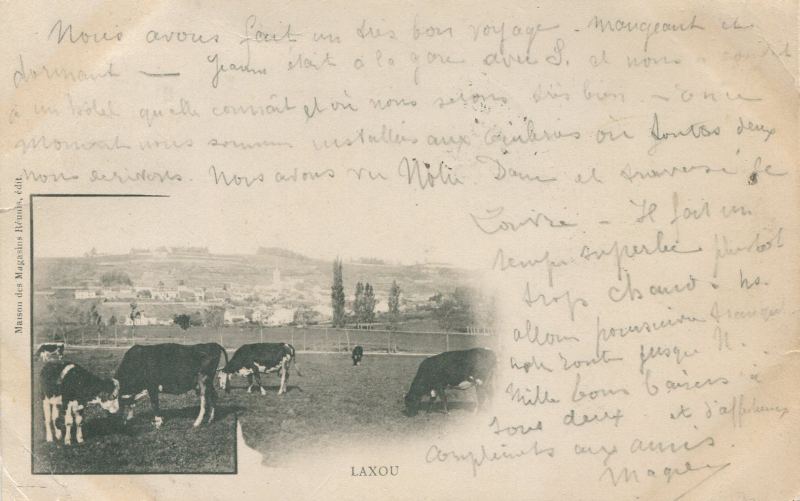 Nous avons fait un très bon voyage. Mangeant et
dormant — Jeanne était à la gare avec S. et nous a conduit
à un hôtel qu'elle connait et où nous serons très bien — En ce
moment nous sommes installées aux Tuileries où toutes deux
nous écrivons. Nous avons vu Notre Dame et traversé le
Louvre — Il fait un
temps superbe plutôt
trop chaud. ns.
allons poursuivre
notre route jusqu'à N.
Mille bons baisers à
tous deux et d'affectueux
compliments aux amis.
Maison des Magasins Réunis, édit.
LAXOU